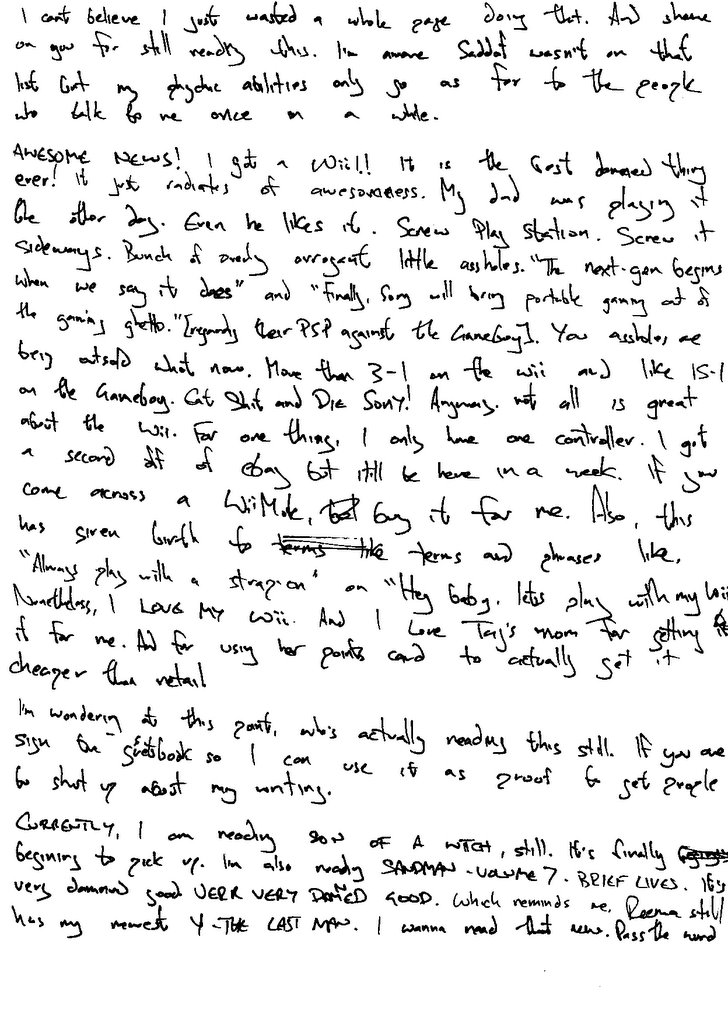 I cant believe I just wasted a whole page doing that. And shame
on you for still reading this. I'm aware Saddat wasn't on that
list but my phychic abilities only go as far to the people
who talk to me once in a while.
AWESOME NEWS! I got a Wii!! It is the best damned thing
ever! It just radiates of awesomeness. My dad was playing it
the other day. Even he likes it. Screw Play station. Screw it
sideways. Bunch of overly arrogant little assholes. "The next-gen begins
when we say it does" and "Finally, Sony will bring portable gaming out of
the gaming ghetto." [regarding their PSP against the Gameboy]. You assholes are
being outsold what now. More than 3-1 on the wii and like 15-1
on the Gameboy. Eat Shit and DIE SONY! Anyway. not all is great
about the Wii. For one thing, I only have one controller. I got
a second off of ebay but itll be here in a week. If you
come across a WiiMote, buy it for me. Also, this
has given birth to terms and phrases like,
"Always play with a strap-on" or "Hey baby. lets play with my Wii
Nonetheless, I LOVE MY Wii. And I love Taj's mom for getting it
it for me. And for using her points card to actually get it
cheaper than retail
I'm wondering at this point, who's actually reading this still. If you are
sign the guestbook so I can use it as proof to get people
to shut up about my writing.
CURRENTLY, I am reading SON OF A WITCH, still. It's finally
begining to pick up. I'm also reading SANDMAN - VOLUME 7 - BRIEF LIVES. It's
very damned good VERR VERY DAMNED GOOD. Which reminds me, Reema still
has my newest Y-THE LAST MAN. I wanna read that new. Pass the word